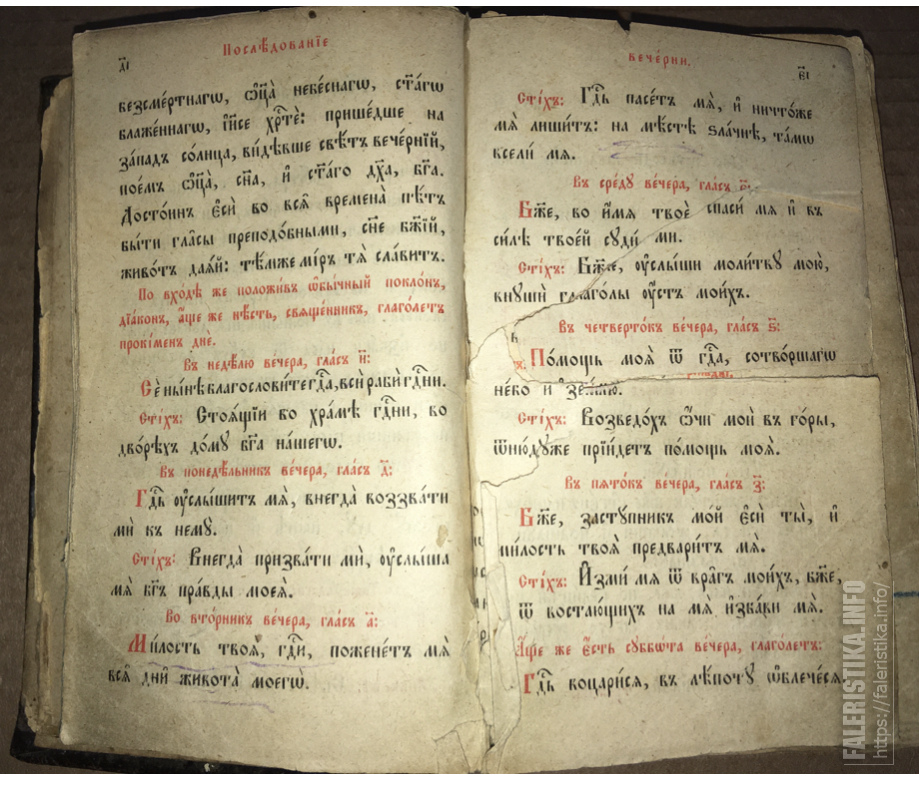 Послѣ́дованїе
д҃і
безсме́ртнагѡ, ѻ҆ц҃а̀ небе́снагѡ, ст҃а́гѡ
блаже́ннагѡ, і҆и҃се хр҇тѐ: прише́дше на
за́падъ со́лнца, ви́дѣвше свѣ́тъ вече́рнїй,
пое́мъ ѻ҆ц҃а̀, сн҃а, и҆ ст҃а́го дх҃а, бг҃а.
Досто́инъ є҆сѝ во всѧ̑ времена̀ пѣ́тъ
бы́ти гла̑сы преподо́бными, сн҃е бж҃їй,
живо́тъ даѧ́й: тѣ́мже мі́ръ тѧ̀ сла́витъ.
По вхо́дѣ же положи́въ ѡ҆бы́чный покло́нъ,
дїа́конъ, а҆́ще же нѣ́сть, свѧще́нникъ, глаго́летъ
проки́менъ днѐ,
Въ недѣ́лю ве́чера, гла́съ и҃:
Сѐ ны́нѣ благослови́те гд҇а, всѝ рабѝ гд҇ни.
Сті́хъ: Стоѧ́щїи во хра́мѣ гд҇ни, во
дво́рѣхъ до́му бг҃а на́шегѡ.
Въ понедѣ́льникъ ве́чера, гла́съ д҃:
Гд҇ь ᲂу҆слы́шитъ мѧ̀, внегда̀ воззва́ти
мѝ къ нему̀.
Сті́хъ: Внегда̀ призва́ти мѝ, ᲂу҆слы́ша
мѧ̀ бг҃ъ пра́вды моеѧ̀.
Во вто́рникъ ве́чера, гла́съ а҃:
Ми́лость твоѧ̀, гд҇и, пожене́тъ мѧ̀
всѧ̑ дни̑ живота̀ моегѡ̀.
вече́рни,
є҃і
Сті́хъ: Гд҇ь пасе́тъ мѧ̀, и҆ ничто́же
мѧ̀ лиши́тъ: на мѣ́стѣ ѕла́чнѣ, та́мѡ
всели́ мѧ.
Въ сре́ду ве́чера, гла́съ є҃:
Бж҃е, во и҆́мѧ твоѐ спаси́ мѧ и҆ въ
си́лѣ твое́й суди́ ми.
Сті́хъ: Бж҃е, ᲂу҆слы́ши моли́тву мою̀,
внушѝ глаго́лы ᲂу҆́стъ мои́хъ.
Въ четверто́къ ве́чера, гла́съ ѕ҃:
По́мощь моѧ̀ ѿ гд҇а, сотво́ршагѡ
не́бо и҆ зе́млю.
Сті́хъ: Возведо́хъ ѻ҆́чи моѝ въ го́ры,
ѿню́дуже прїи́детъ по́мощь моѧ̀.
Въ пѧто́къ ве́чера, гла́съ з҃:
Бж҃е, засту́пникъ мо́й є҆сѝ ты̀, и҆
ми́лость твоѧ̀ предвари́тъ мѧ̀.
Сті́хъ: И҆зми́ мѧ ѿ вра̑гъ мои́хъ, бж҃е,
ѿ востаю́щихъ на мѧ̀ и҆зба́ви мѧ̀.
А҆́ще же є҆́сть суббѡ́та ве́чера, глаго́летъ:
Гд҇ь воцари́сѧ, въ лѣ́поту ѡ҆блече́сѧ.
FALERISTIKA.INFO
https://faleristika.info/